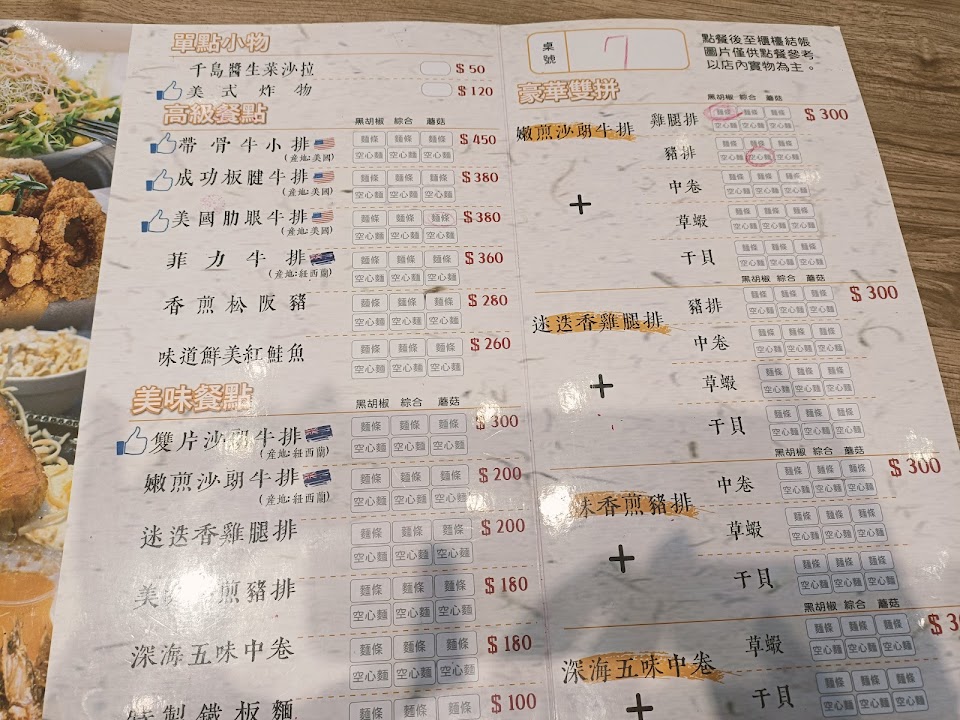 單點小物
千島醬生菜沙拉 $50
美式炸物 $120
高級餐點
黑胡椒 綜合 蘑菇
帶骨牛小排 麵條 麵條 麵條 $450
(產地:美國) 空心麵 空心麵 空心麵
成功板腱牛排 麵條 麵條 麵條 $380
(產地:美國) 空心麵 空心麵 空心麵
美國肋眼牛排 麵條 麵條 麵條 $380
(產地:美國) 空心麵 空心麵 空心麵
菲力牛排 麵條 麵條 麵條 $360
(產地:紐西蘭) 空心麵 空心麵 空心麵
香煎松阪豬 麵條 麵條 麵條 $280
空心麵 空心麵 空心麵
味道鮮美紅鮭魚 麵條 麵條 麵條 $260
空心麵 空心麵 空心麵
美味餐點
黑胡椒 綜合 蘑菇
雙片沙朗牛排 麵條 麵條 麵條 $300
(產地:紐西蘭) 空心麵 空心麵 空心麵
嫩煎沙朗牛排 麵條 麵條 麵條 $200
(產地:紐西蘭) 空心麵 空心麵 空心麵
迷迭香雞腿排 麵條 麵條 麵條 $200
空心麵 空心麵 空心麵
美 煎豬排 麵條 麵條 麵條 $180
空心麵 空心麵 空心麵
深海五味中卷 麵條 麵條 麵條 $180
空心麵 空心麵 空心麵
特製鐵板麵 麵條 麵條 麵條 $100
空心麵 空心麵 空心麵
桌號 7
點餐後至櫃檯結帳
圖片僅供點餐參考
以店內實物為主。
豪華雙拼
黑胡椒 綜合 蘑菇
嫩煎沙朗牛排
+
雞腿排 麵條 麵條 麵條 $300
空心麵 空心麵 空心麵
豬排 麵條 麵條 麵條
空心麵 空心麵 空心麵
中卷 麵條 麵條 麵條
空心麵 空心麵 空心麵
草蝦 麵條 麵條 麵條
空心麵 空心麵 空心麵
干貝 麵條 麵條 麵條
空心麵 空心麵 空心麵
黑胡椒 綜合 蘑菇
迷迭香雞腿排
+
豬排 麵條 麵條 麵條 $300
空心麵 空心麵 空心麵
中卷 麵條 麵條 麵條
空心麵 空心麵 空心麵
草蝦 麵條 麵條 麵條
空心麵 空心麵 空心麵
干貝 麵條 麵條 麵條
空心麵 空心麵 空心麵
黑胡椒 綜合 蘑菇
味香煎豬排
+
中卷 麵條 麵條 麵條 $300
空心麵 空心麵 空心麵
草蝦 麵條 麵條 麵條
空心麵 空心麵 空心麵
干貝 麵條 麵條 麵條
空心麵 空心麵 空心麵
黑胡椒 綜合 蘑菇
深海五味中卷
+
草蝦 麵條 麵條 麵條 $30
空心麵 空心麵 空心麵
干貝 麵條 麵條 麵條
空心麵 空心麵 空心麵